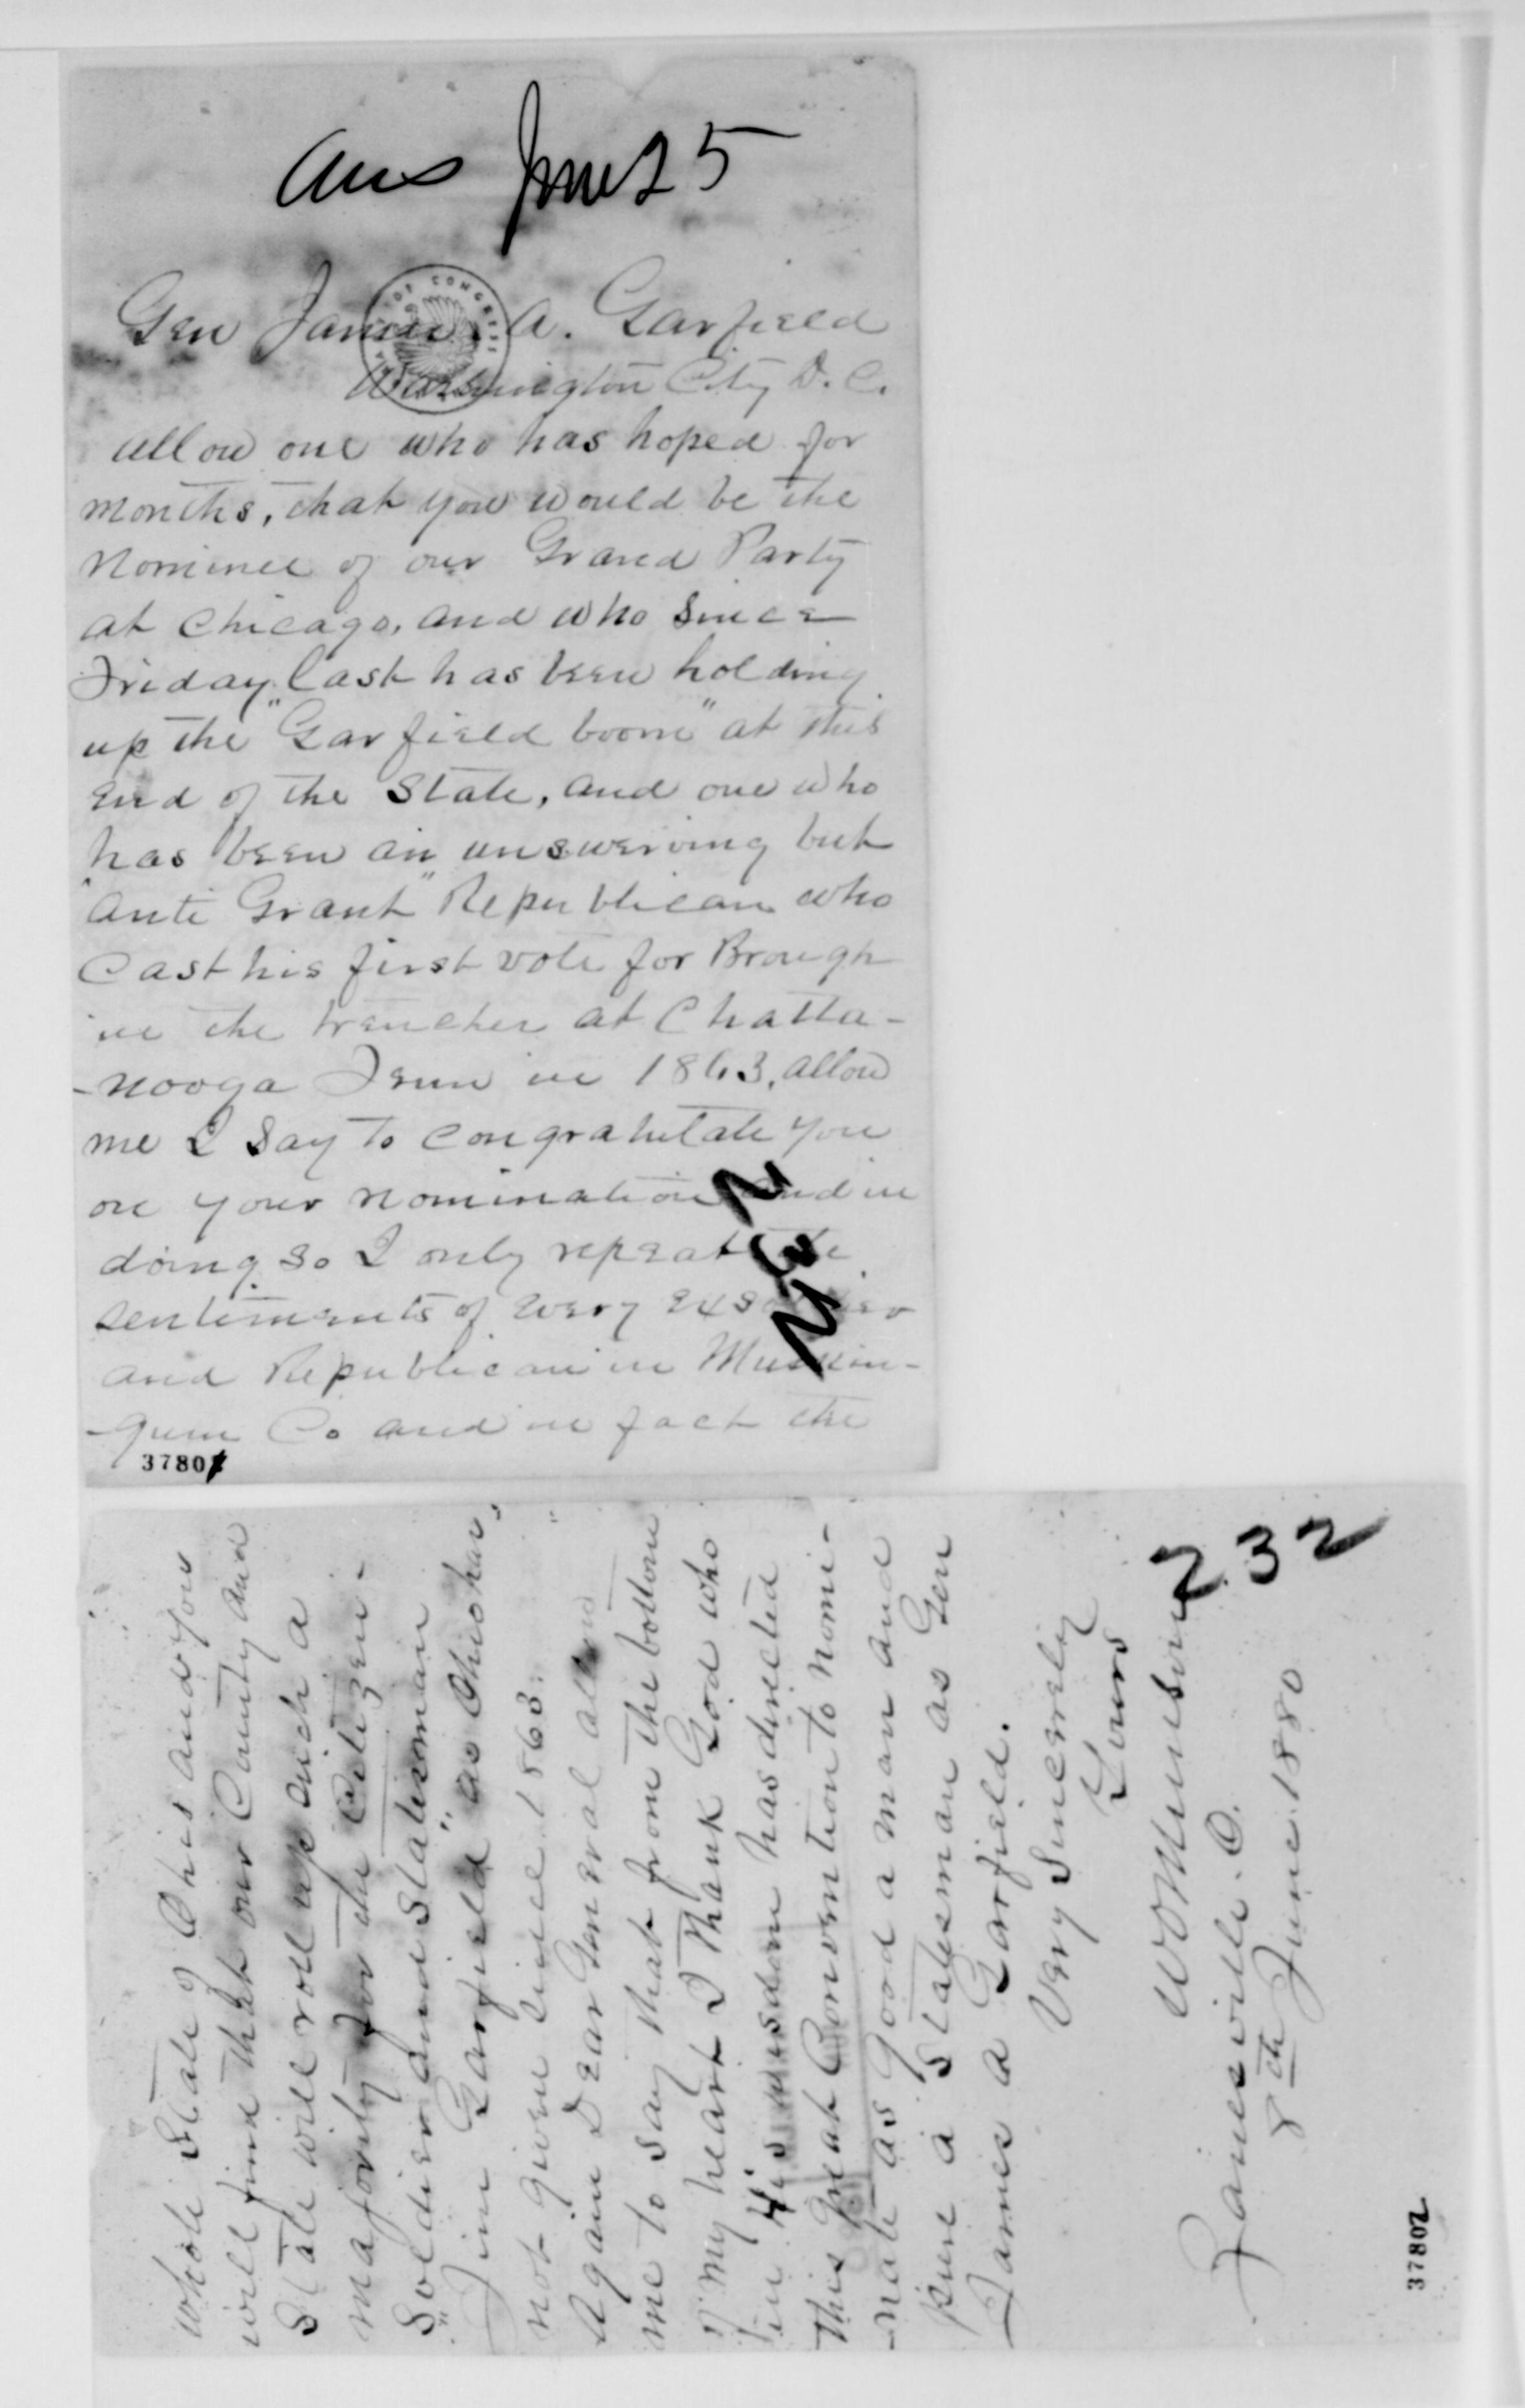 Ans June 25
Gen James A. Garfield
Washington City D. C.
allow one who has hoped for
months, that you would be the
nominee of our Grand Party
at Chicago, and who since
Friday last has been holding
up the "Garfield boom" at this
end of the State, and one who
has been an unswerving but
"anti Grant" Republican who
cast his first vote for Brough
in the trenches at Chatta-
-nooga Tenn in 1863, allow
me I say to congratulate you
on your nomination and in
doing so I only repeat the
sentiments of every exsoldier
and Republican in Muskin-
-gum Co and in fact the
232
37801
whole State of Ohio and you
will find that our County and
State will roll up such a
majority for the Citizen-
Soldier and Statesman
"Jim Garfield" as Ohio has
not given since 1863.
Again Dear General allow
me to say that from the bottom
of my heart I Thank God who
in His wisdom has directed
this great Convention to nomi-
-nate as good a man and
pure a Statesman as Gen
James A Garfield.
Very Sincerely
Yours
232
Zanesville. O.
8th June. 1880
37802